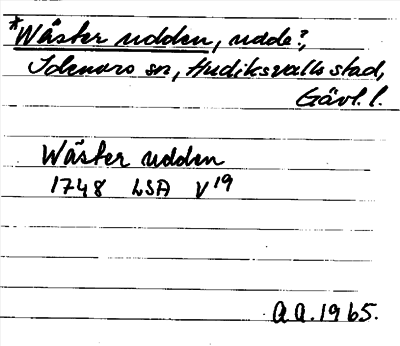 *Wäster udden, udde?,
Idenors sn, Hudiksvalls stad,
Gävl. l.
Wäster udden
1748 LSA V19
A.A. 1965.